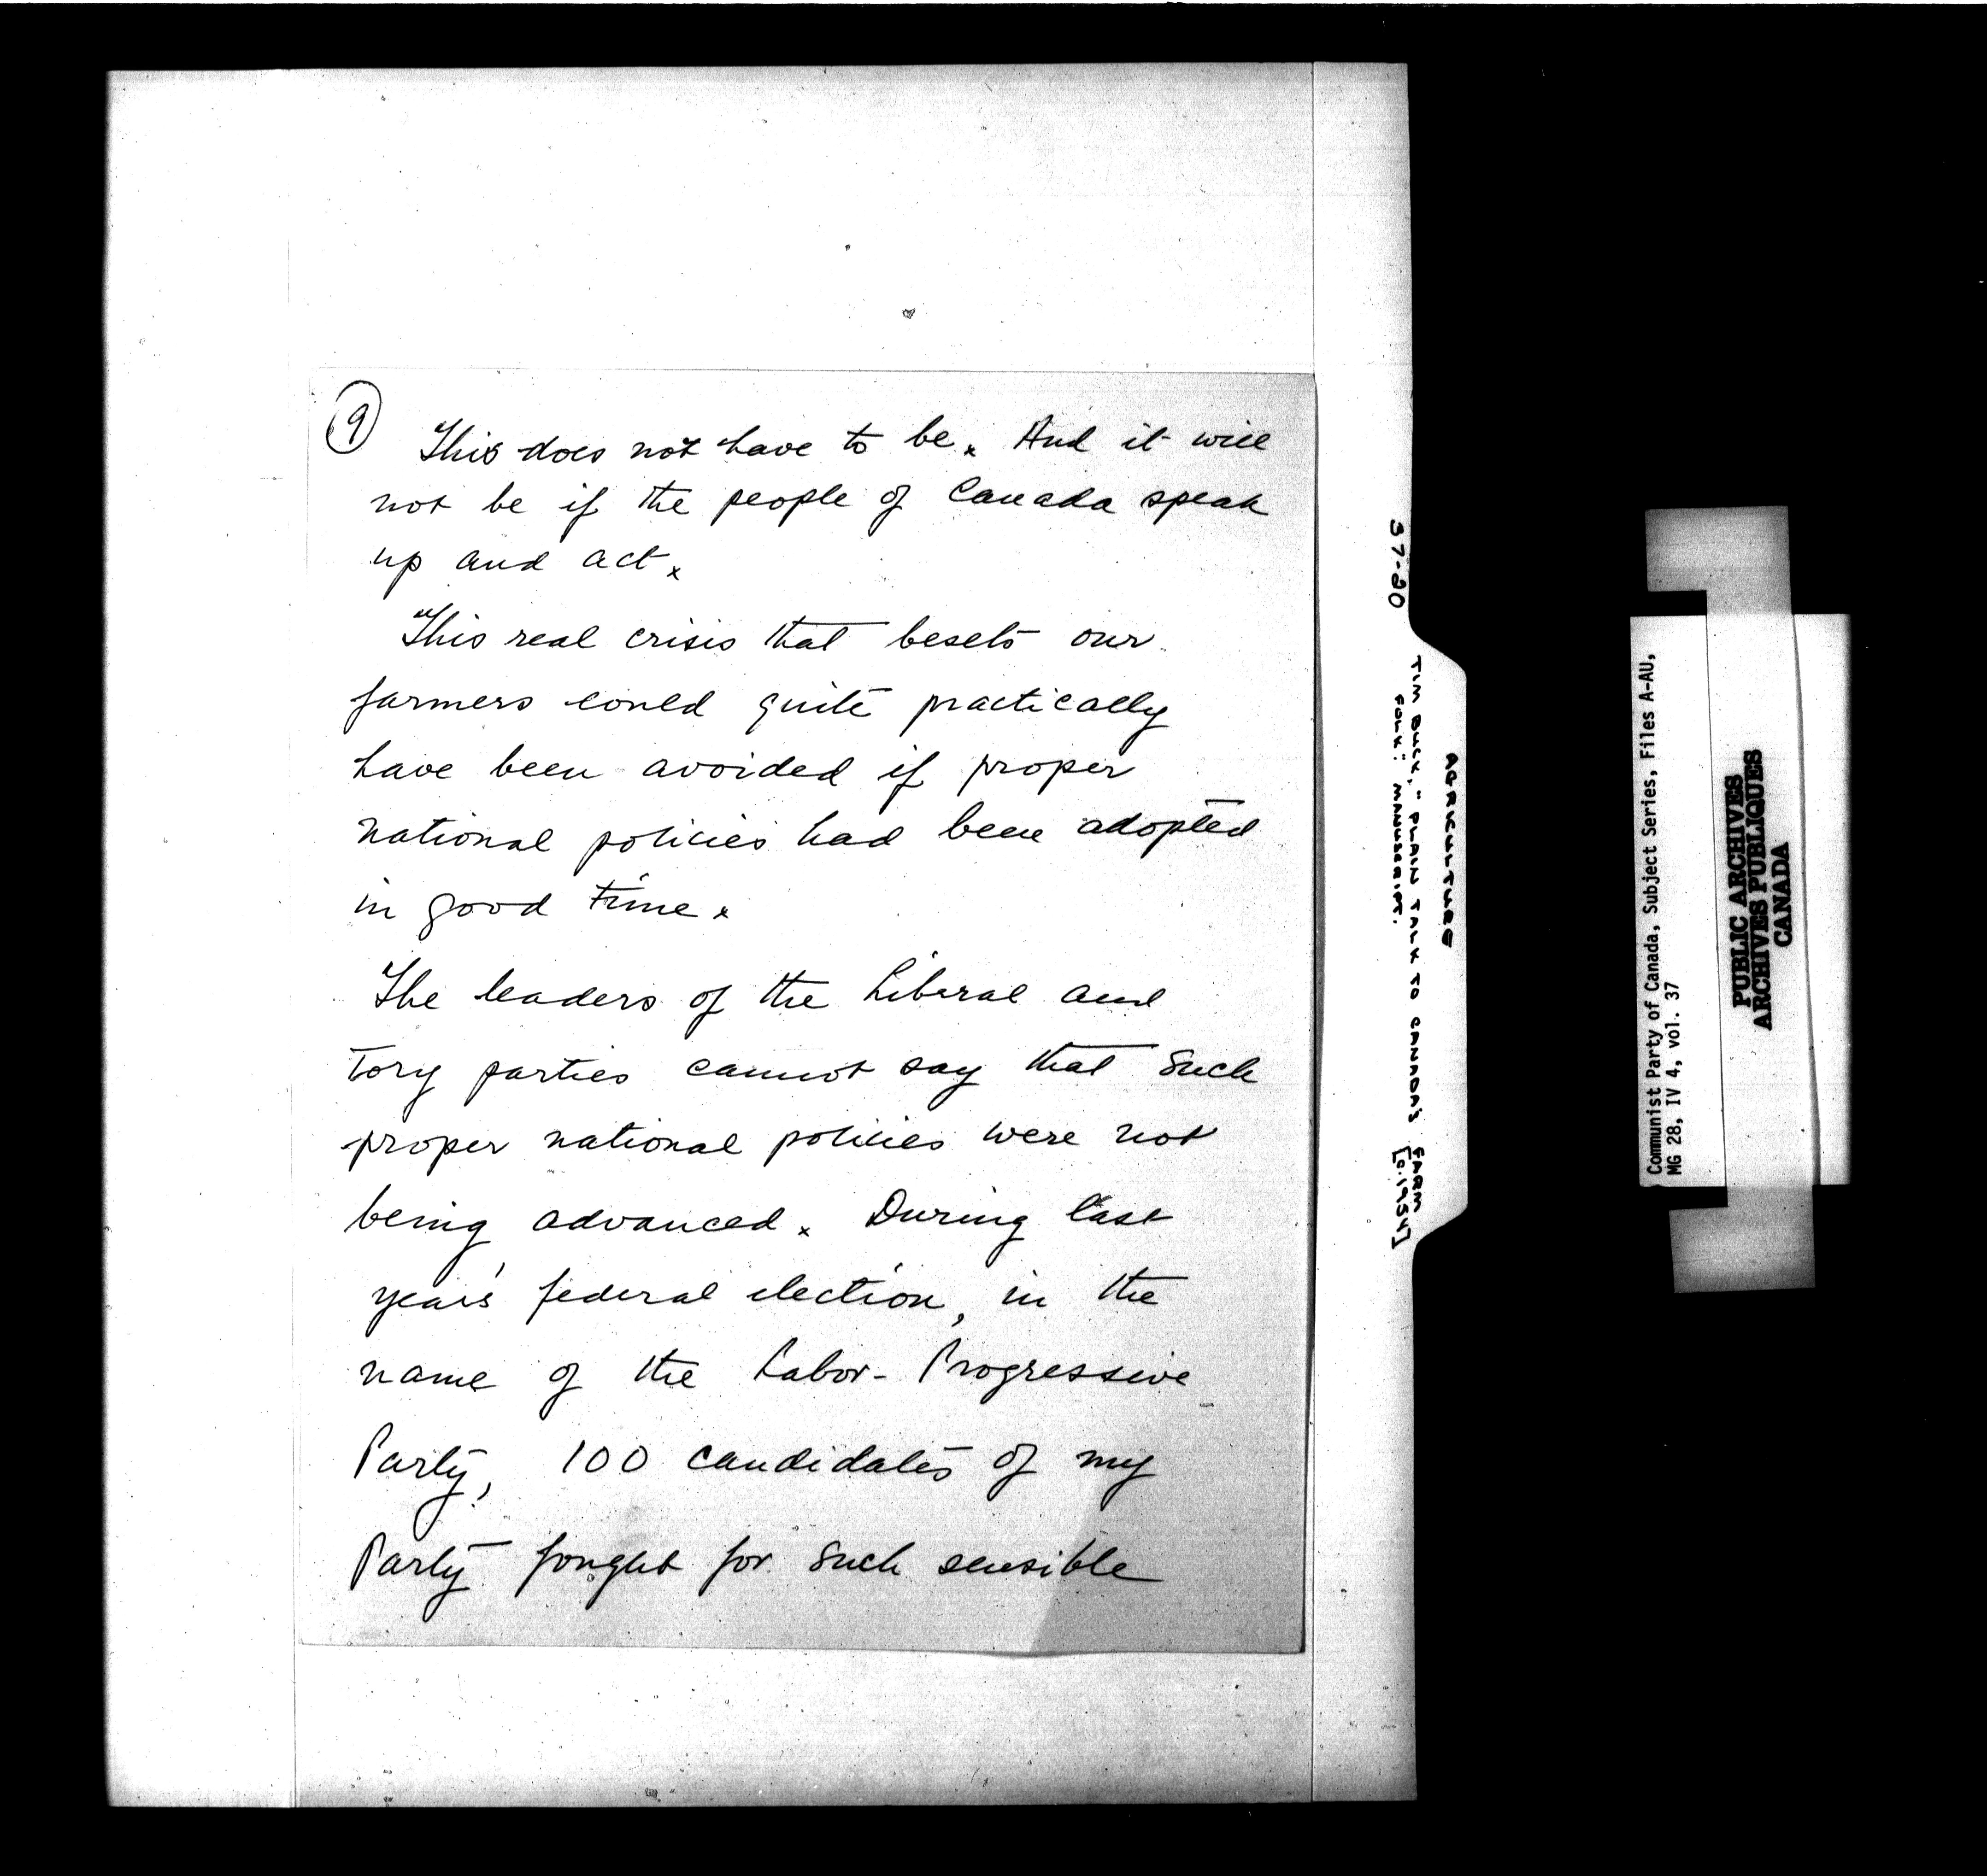 9
This does not have to be. And it will
not be if the people of Canada speak
up and act.
This real crisis that besets our
farmers could quite practically
have been avoided if proper
national policies had been adopted
in good time.
The leaders of the Liberal and
Tory parties cannot say that such
proper national policies were not
being advanced. During last
year's federal election, in the
name of the Labor-Progressive
Party, 100 candidates of my
Party fought for such sensible
37-20
AGRICULTURE
TIM BUCK, "PLAIN TALK TO CANADA'S FARM
FOLK: MANUSCRIPT. [c.1954]
Communist Party of Canada, Subject Series, Files A-AU,
MG 28, IV 4, vol. 37
PUBLIC ARCHIVES
ARCHIVES PUBLIQUES
CANADA